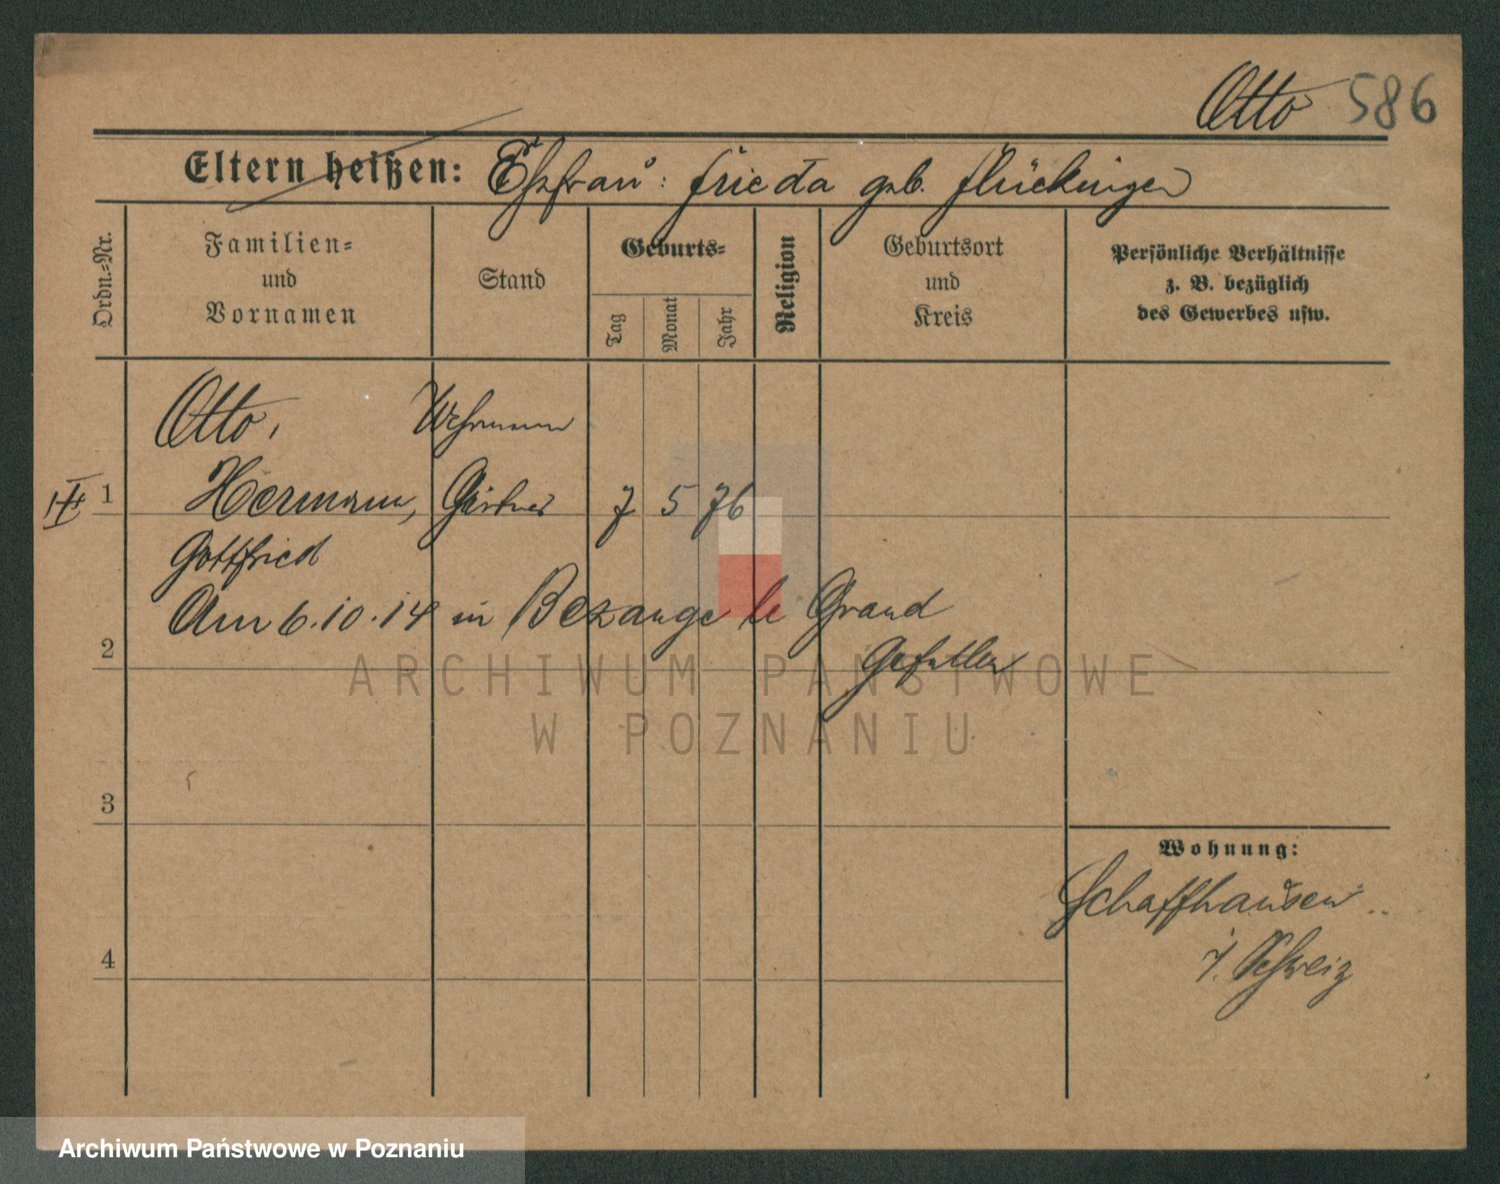 Otto 586
Eltern heißen: Ehefrau: Frieda geb. Flückinger
Ordn.=Nr.
Familien=
und
Vornamen
Stand
Geburts=
Tag
Monat
Jahr
Religion
Geburtsort
und
Kreis
Persönliche Verhältnisse
z. B. bezüglich
des Gewerbes usw.
Otto, Wehrmann
1 Hermann, Gärtner 7 5 76
Gottfried
Am 6.10.14 in Bezange le Grand
2 Gefallen
ARCHIWUM PAŃSTWOWE
W POZNANIU
3
Wohnung:
Schaffhausen
i. Schweiz
4
Archiwum Państwowe w Poznaniu